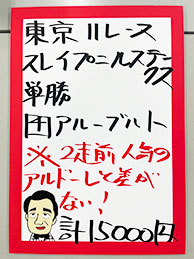 東京11レース
スレイプニルステークス
単勝
団アルーブルト
※2走前人気の
アルドーレと差が
ない!
計15000円